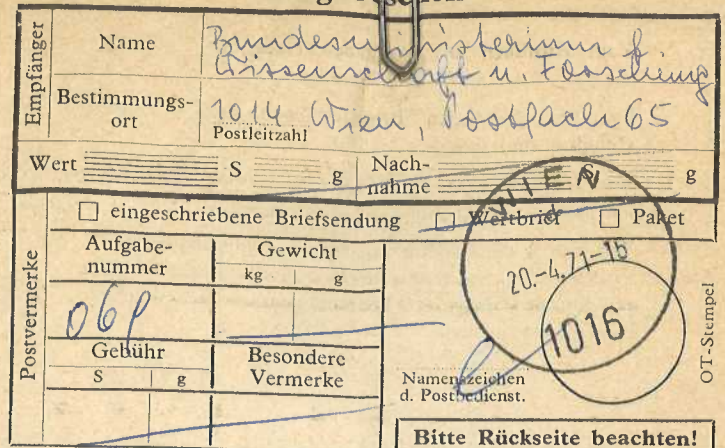 Empfänger
Name
Bundesministerium f.
Wissenschaft u. Forschung
Bestimmungs-
ort
1014 Wien, Postfach 65
Postleitzahl
Wert S g
Nach-
nahme S g
eingeschriebene Briefsendung Wertbrief Paket
Postvermerke
Aufgabe-
nummer
Gewicht
kg g
Gebühr
S g
Besondere
Vermerke
WIEN
20.-4.71-16
1016
OT-Stempel
Namenszeichen
d. Postbedienst.
Bitte Rückseite beachten!